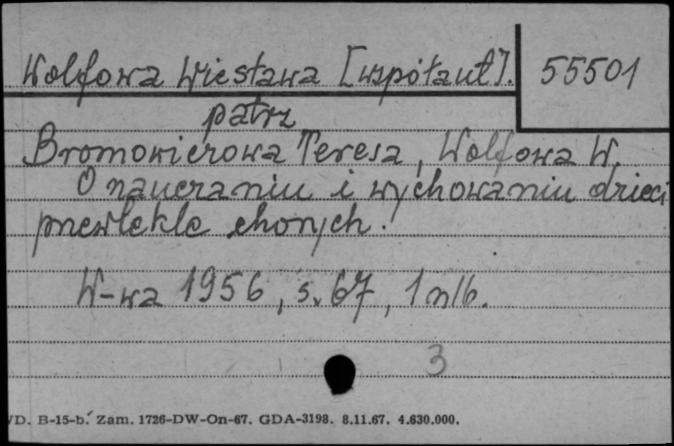 Wolfowa Wiesława [współaut]. 55501
patrz
Bromowiczowa Teresa, Wolfowa W.
O nauczaniu i wychowaniu dzieci
przewlekle chorych.
W-wa 1956, s. 67, 1 nlb.
3
VD. B-15-b. Zam. 1726-DW-On-67. GDA-3198. 8.11.67. 4.630.000.